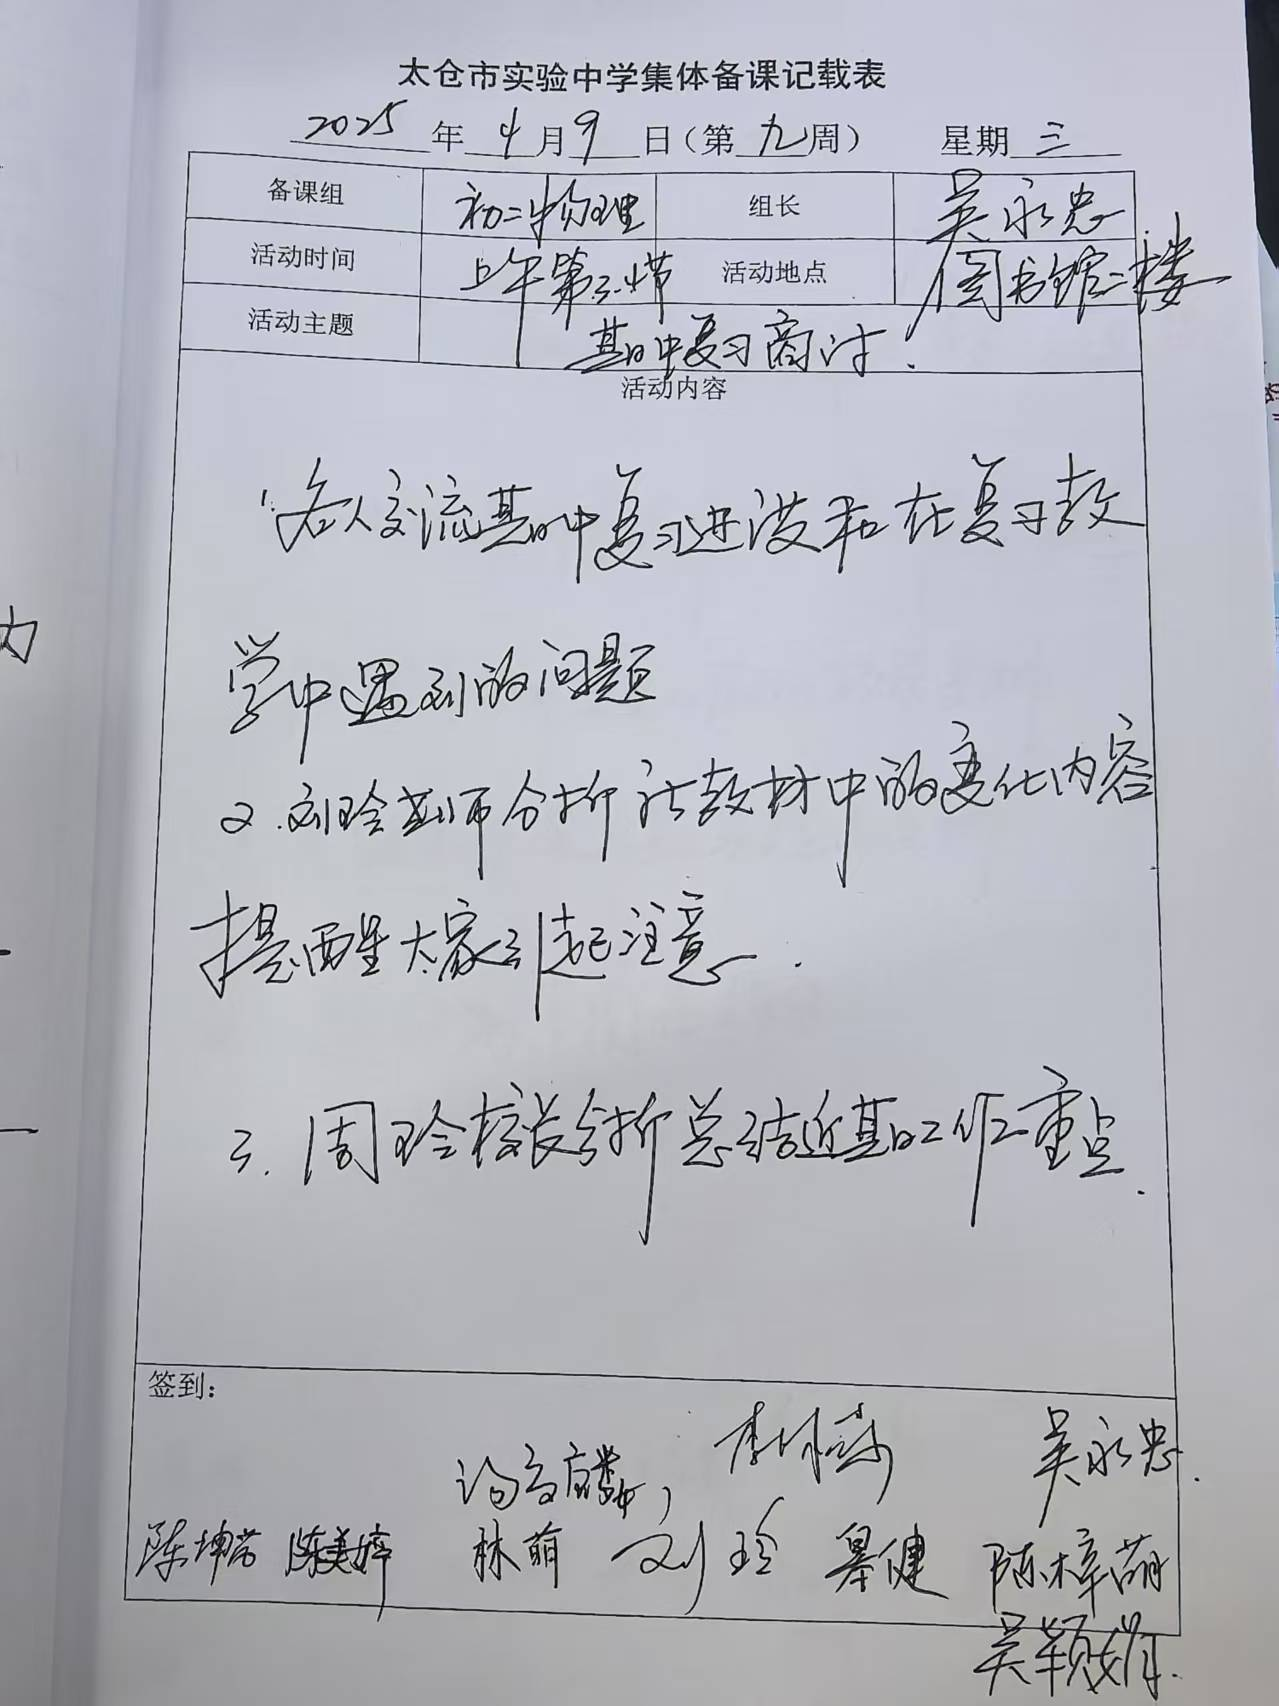 太仓市实验中学集体备课记载表
2025年4月9日（第九周） 星期三
备课组 初二物理 组长 吴永忠
活动时间 上午第三.四节 活动地点 图书馆二楼
活动主题 期中复习商讨.
活动内容
1.各人交流期中复习进度和在复习教
学中遇到的问题
2.刘玲老师分析新教材中的变化内容
提醒大家引起注意.
三.周玲校长分析总结近期工作重点.
签到：
吴永忠.
陈美婷 林萌 刘玲 陈梓萌
吴颖娟.
内